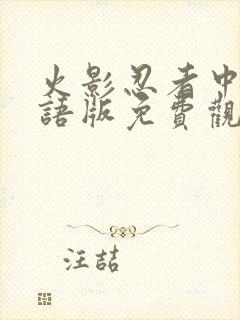 火影忍者中
語版免費觀
汪喆